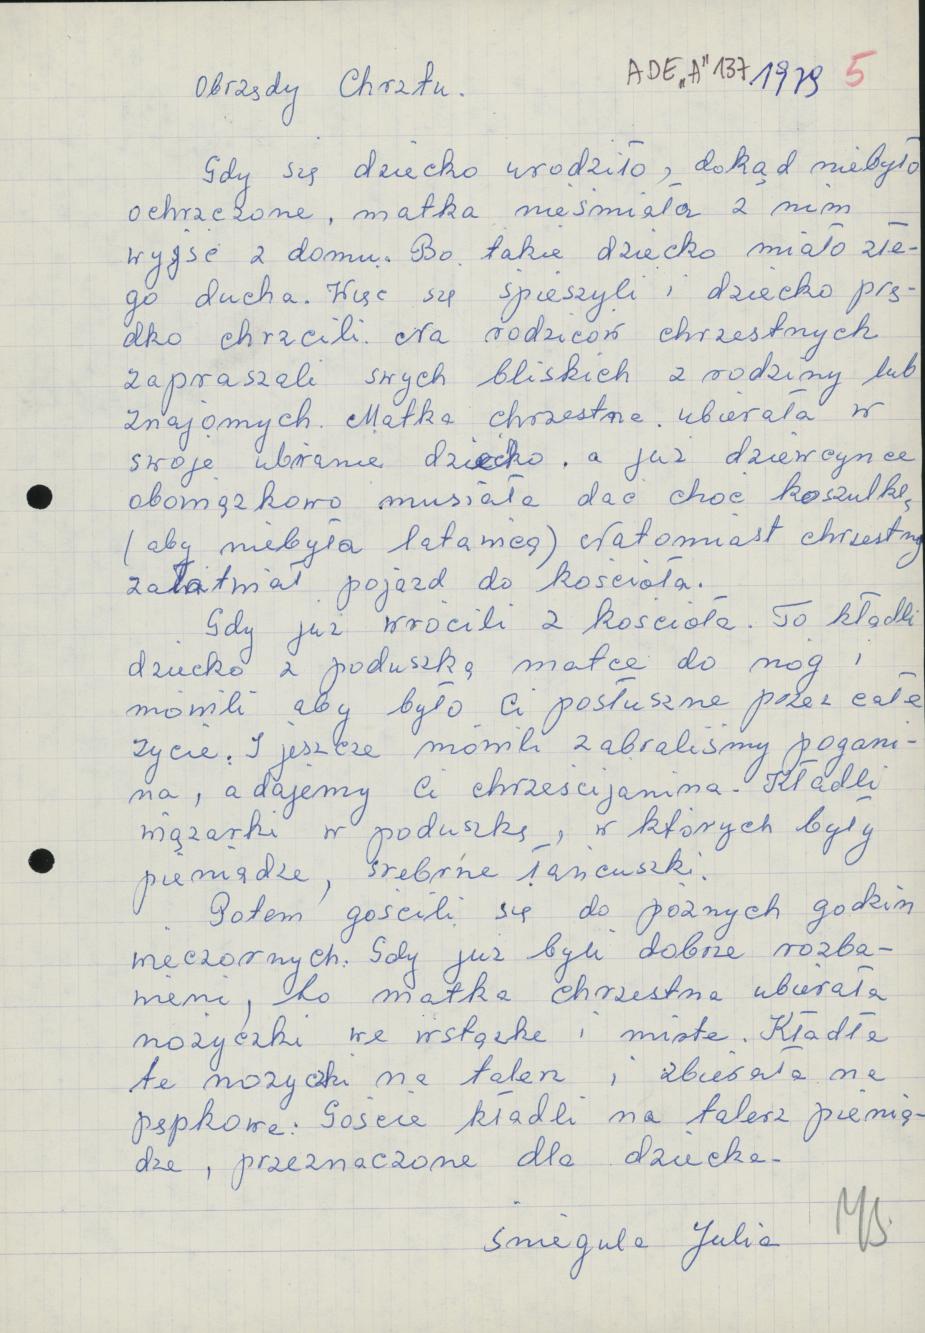 Obrzędy Chrztu.
ADE „A" 137 1979 5
Gdy się dziecko urodziło, dokąd niebyło
ochrzczone, matka nieśmiała z nim
wyjść z domu. Bo takie dziecko miało złe-
go ducha. Więc się śpieszyli i dziecko prę-
dko chrzcili. Na rodziców chrzestnych
zapraszali swych bliskich z rodziny lub
znajomych. Matka chrzestna ubierała w
swoje ubranie dziecko, a już dziewcynce
obowiązkowo musiała dać choć koszulkę,
(aby niebyła latawicą) Natomiast chrzestny
załatwiał pojazd do kościoła.
Gdy już wrócili z kościoła. To kładli
dziecko z poduszką matce do nóg i
mówili aby było Ci posłuszne przez całe
życie. I jeszcze mówili zabraliśmy pogani-
na, adajemy Ci chrześcijanina. Kładli
wiązarki w poduszkę, w których były
pieniądze, srebrne łańcuszki.
Potem gościli się do póżnych godzin
wieczornych. Gdy już byli dobrze rozba-
wieni, to matka chrzestna ubierała
nożyczki we wstążke i mirte. Kładła
te nożyczki na talerz i zbierała na
pępkowe. Goście kładli na talerz pienią-
dze, przeznaczone dla dziecka.
Śmiegula Julia